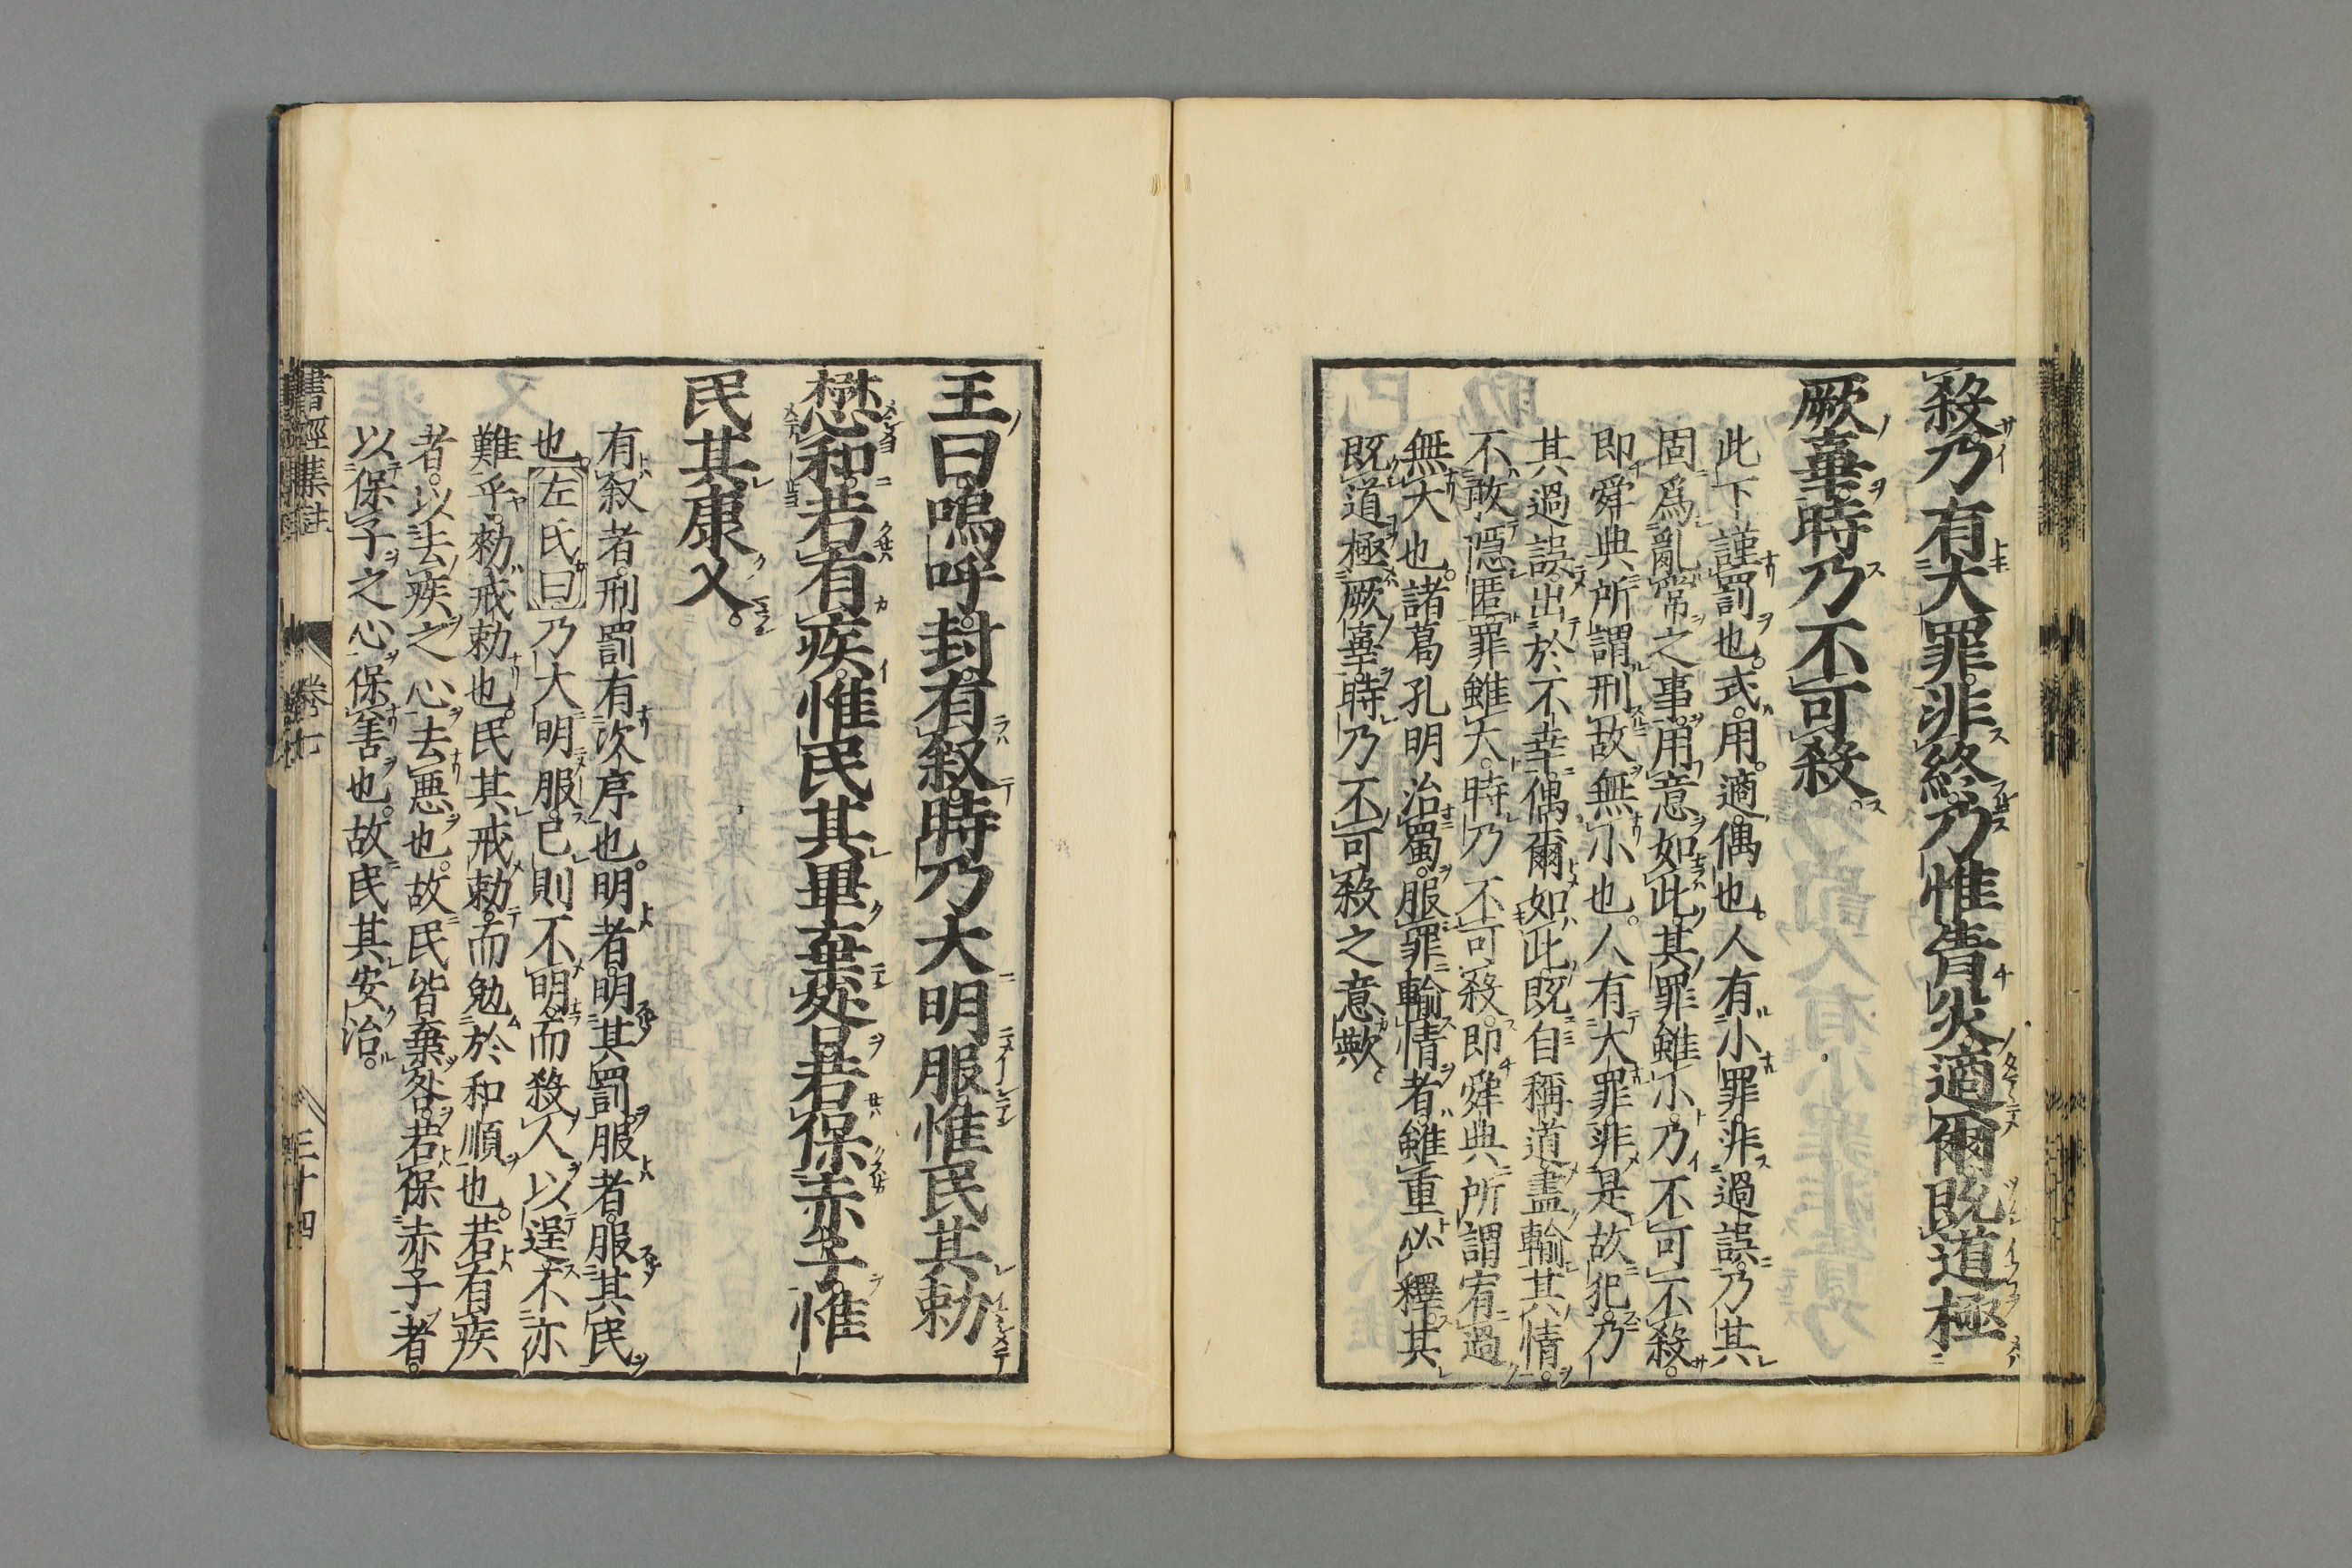 殺乃有大罪非終乃惟眚烖適爾既道極
厥辜時乃不可殺。
此下謹罰也。式。用。適。偶也。人有小罪非過誤。乃其
固爲亂常之事。用意如此。其罪雖小。乃不可不殺。
即舜典所謂刑故無小也。人有大罪非是故犯。乃
其過誤。出於不幸。偶爾如此。既自稱道盡輸其情。
不敢隱匿。罪雖大。時乃不可殺。即舜典所謂宥過
無大也。諸葛孔明治蜀。服罪輸情者。雖重必釋。其
既道極厥辜。時乃不可殺之意歟。
王曰。嗚呼。封。有叙時乃大明服惟民其勅
懋和。若有疾。惟民其畢棄咎。若保赤子。惟
民其康乂。
有叙者。刑罰有次序也。明者。明其罰。服者。服其民
也。左氏曰乃大明服。己則不明。而殺人以逞。不亦
難乎。勑。戒勅也。民其戒勅。而勉於和順也。若有疾
者。以去疾之心去惡也。故民皆棄咎。若保赤子者。
以保子之心保善也。故民其安治。
書經集註　卷七　三十四